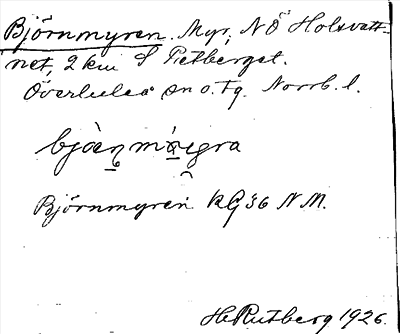 Björnmyren. Myr, NÖ Holsvatt-
net, 2 km S Petberget.
Överluleå sn o. tg. Norrb. l.
Björnmyren RG 36 N M.
H. Rutberg 1926.